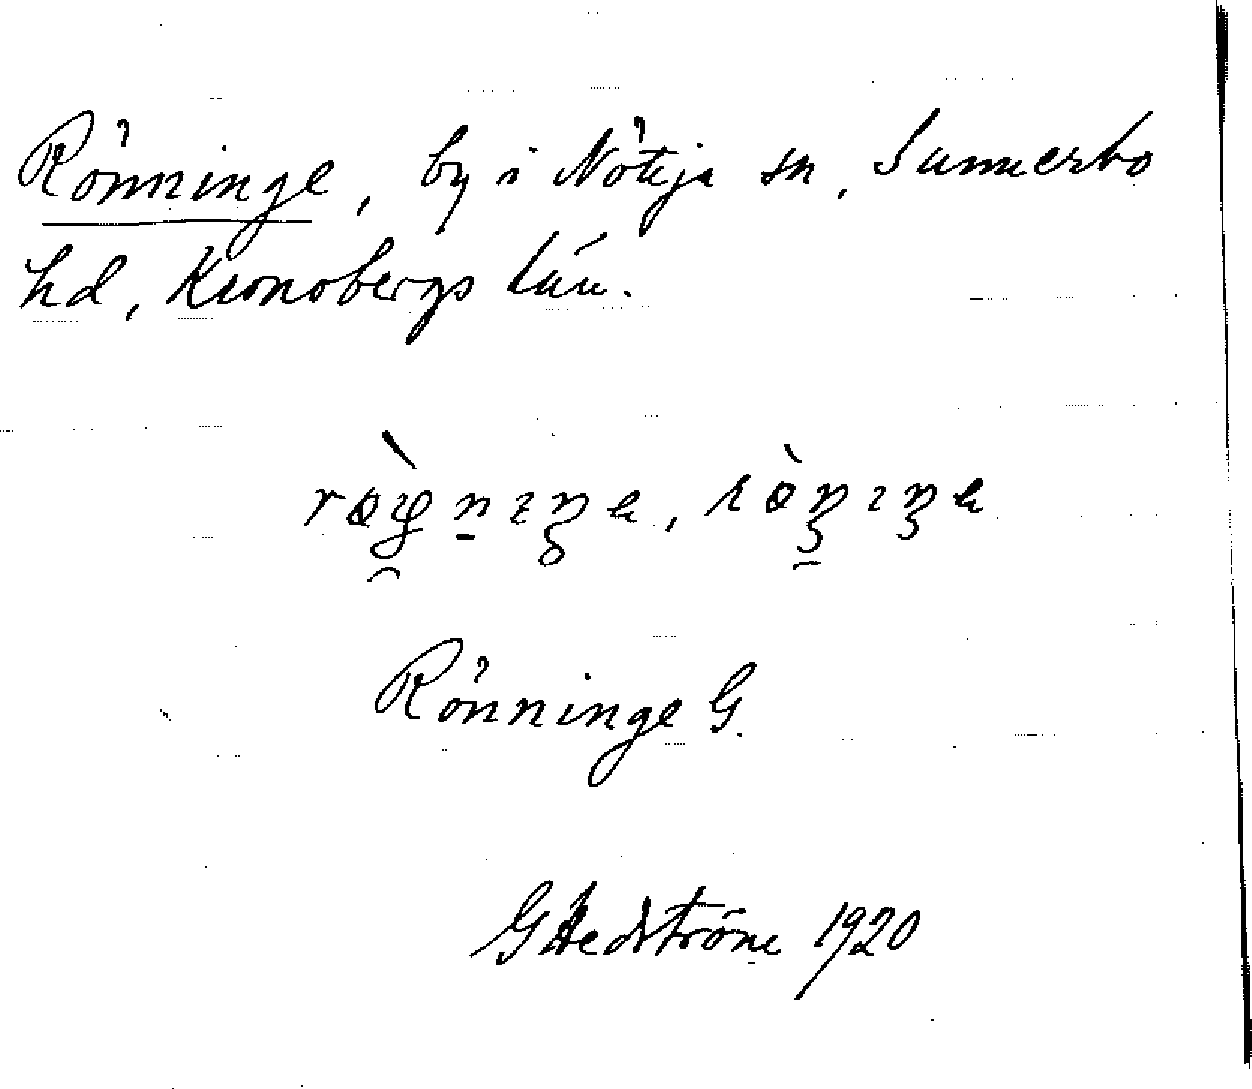 Rönninge, by i Nöttja sn, Sunnerbo
hd, Kronobergs län.
Rönninge G.
G Hedström 1920